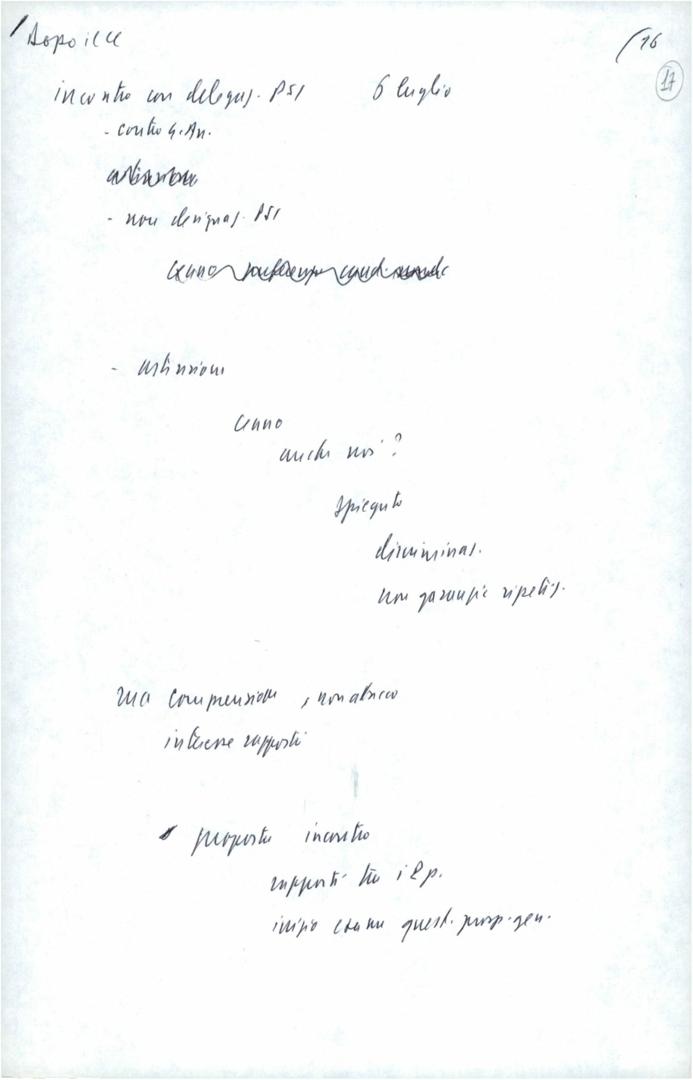 Dopo il CC
(16
17
incontro con delegaz. PSI 6 luglio
- contro G. An.
astensione
- non designaz. PSI
cenno
- astensione
cenno
anche noi?
spiegato
discriminaz.
non garanzie ripetiz.
ma comprensione, non attacco
interesse rapporti
proposta incontro
rapporti tra i 2 p.
inizio esame quest. prosp. gen.